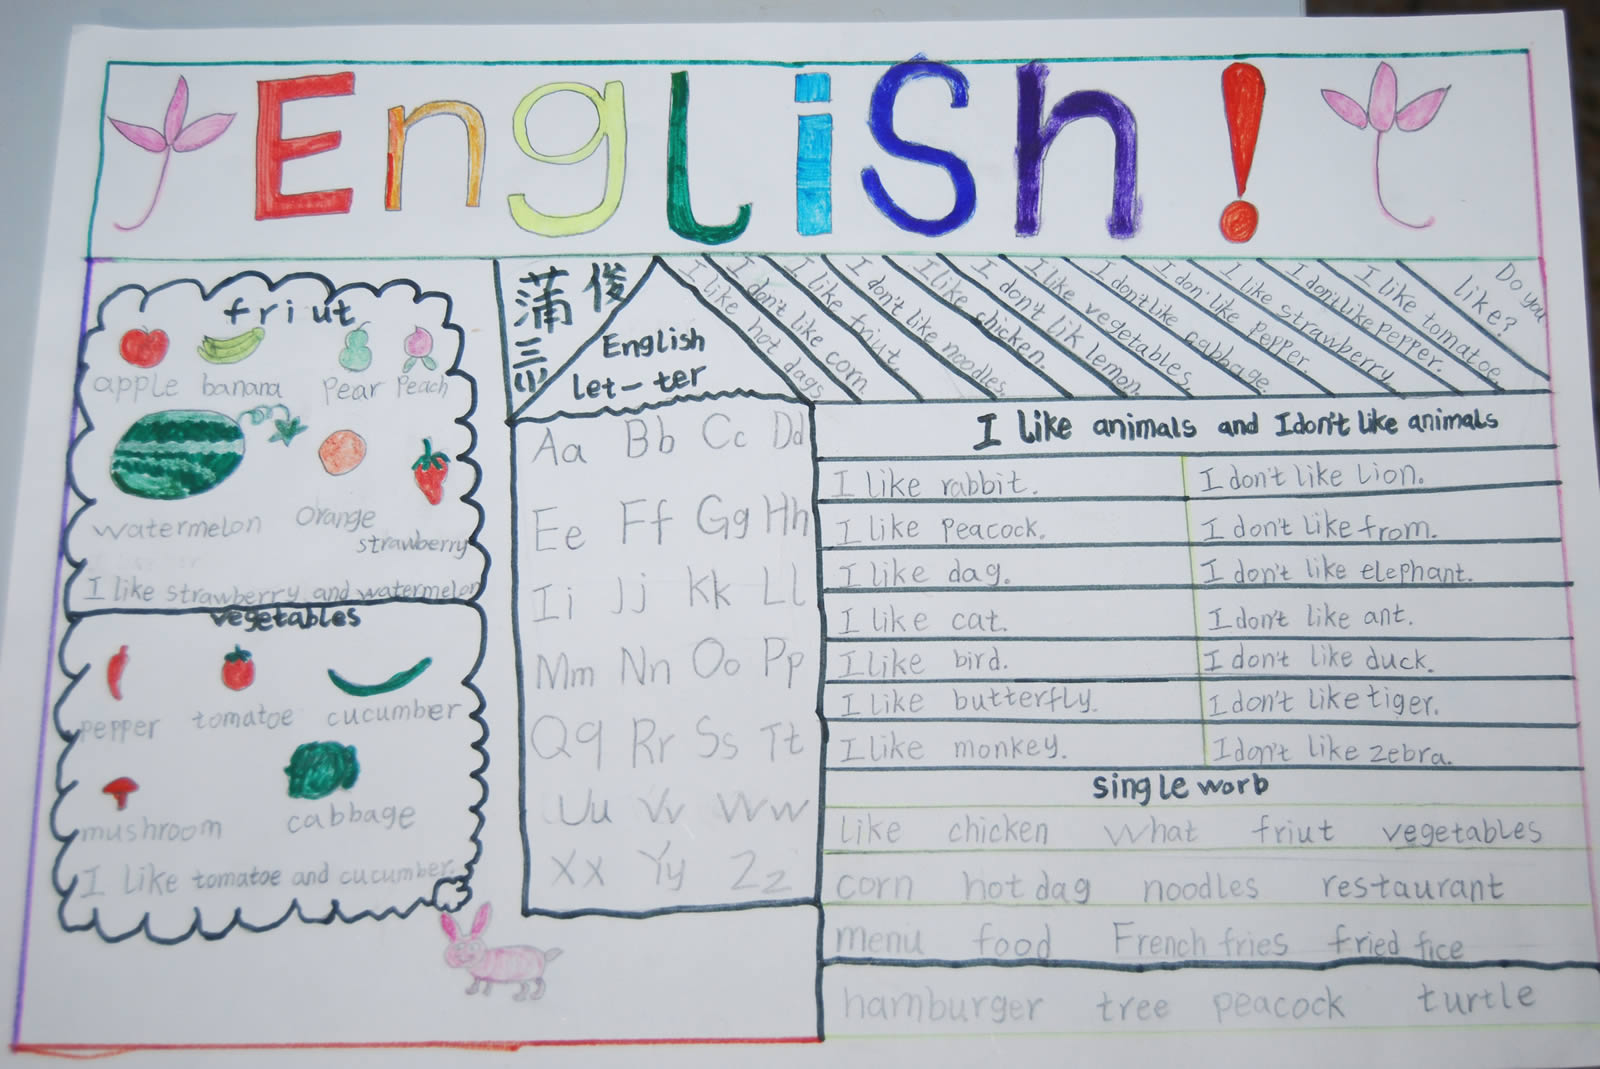 English!
friut
apple banana Pear Peach
watermelon orange
strawberry
I like strawberry and watermelon
vegetables
pepper tomatoe cucumber
mushroom cabbage
I like tomatoe and cucumber.
蒲俊
三(1)
English
let-ter
Aa Bb Cc Dd
Ee Ff Gg Hh
Ii Jj Kk Ll
Mm Nn Oo Pp
Qq Rr Ss Tt
Uu Vv Ww
Xx Yy Zz
I like hot dags
I don't like corn.
I like friut.
I don't like noodles.
I like chicken.
I don't lik lemon.
I like vegetables.
I don't like cabbage.
I don' like pepper.
I like strawberry.
I don't like pepper.
I like tomatoe.
Do you like?
I like animals and I don't like animals
I like rabbit. I don't like lion.
I like peacock. I don't like from.
I like dag. I don't like elephant.
I like cat. I don't like ant.
I like bird. I don't like duck.
I like butterfly. I don't like tiger.
I like monkey. I don't like zebra.
single worb
like chicken what friut vegetables
corn hot dag noodles restaurant
menu food French fries fried fice
hamburger tree peacock turtle